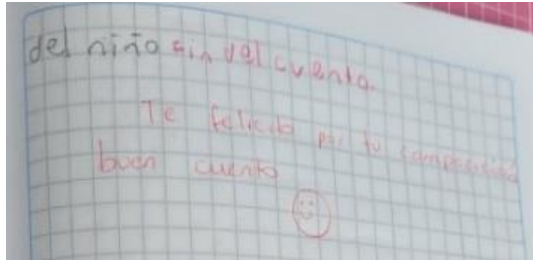 del niño sin del cuento.
Te felicito por tu composición
buen cuento